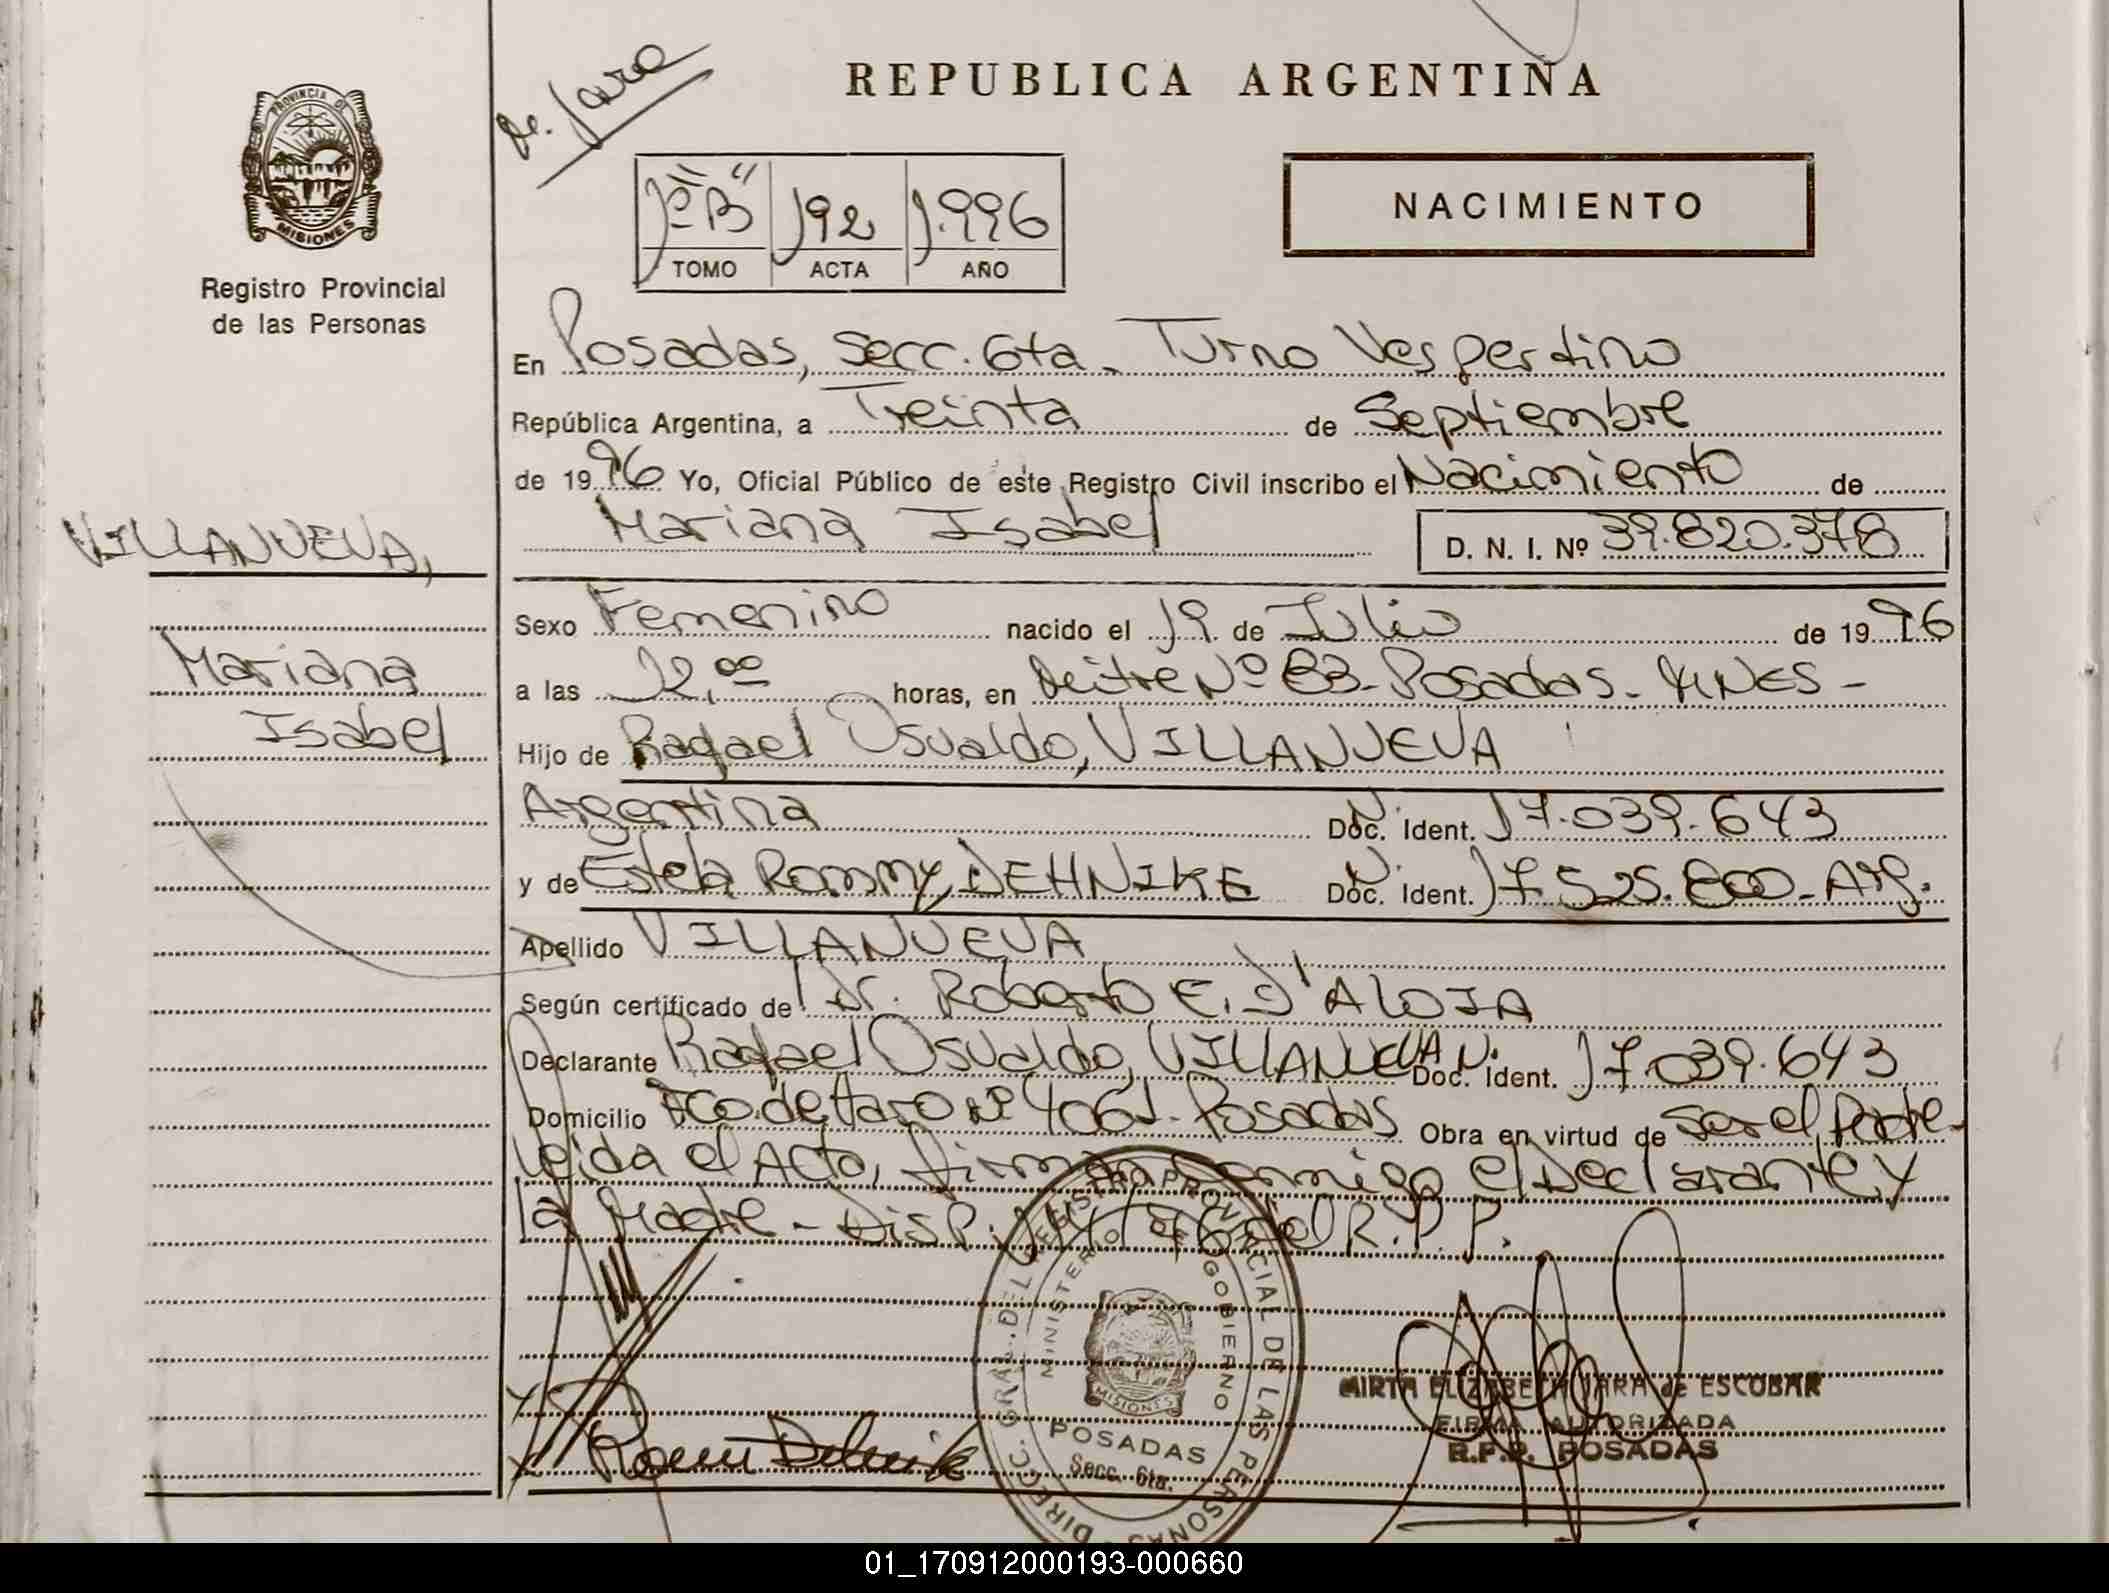 Dr. Jara
REPUBLICA ARGENTINA
PROVINCIA DE
MISIONES
Registro Provincial
de las Personas
1º "B" 192 1.996
TOMO ACTA AÑO
NACIMIENTO
En Posadas, Secc. 6ta. Turno Vespertino
República Argentina, a Treinta de Septiembre
de 1996 Yo, Oficial Público de este Registro Civil inscribo el Nacimiento de
Mariana Isabel D. N. I. Nº 39.820.378
VILLANUEVA,
Mariana
Isabel
Sexo Femenino nacido el 19 de Julio de 1996
a las 12,00 horas, en Mitre Nº 83-Posadas-MNES-
Hijo de Rafael Osvaldo, VILLANUEVA
Argentina Doc. Ident. N. 17.039.643
y de Estela Rommy, DEHNIKE Doc. Ident. N. 17.525.800-Arg.
Apellido VILLANUEVA
Según certificado de Dr. Roberto E. D'ALOIA
Declarante Rafael Osvaldo, VILLANUEVA Doc. Ident. N. 17.039.643
Domicilio Fco. de Haro Nº 4061-Posadas Obra en virtud de ser el Padre-
Leida el Acta, firman conmigo el Declarante y
la Madre- Disp. del R.P.P.
DIRECC. GRAL. DEL REGISTRO PROVINCIAL DE LAS PERSONAS
MINISTERIO DE GOBIERNO
MISIONES
POSADAS
Secc. 6ta.
MIRTA ELIZABETH JARA de ESCOBAR
FIRMA AUTORIZADA
R.P.P. POSADAS
01_170912000193-000660